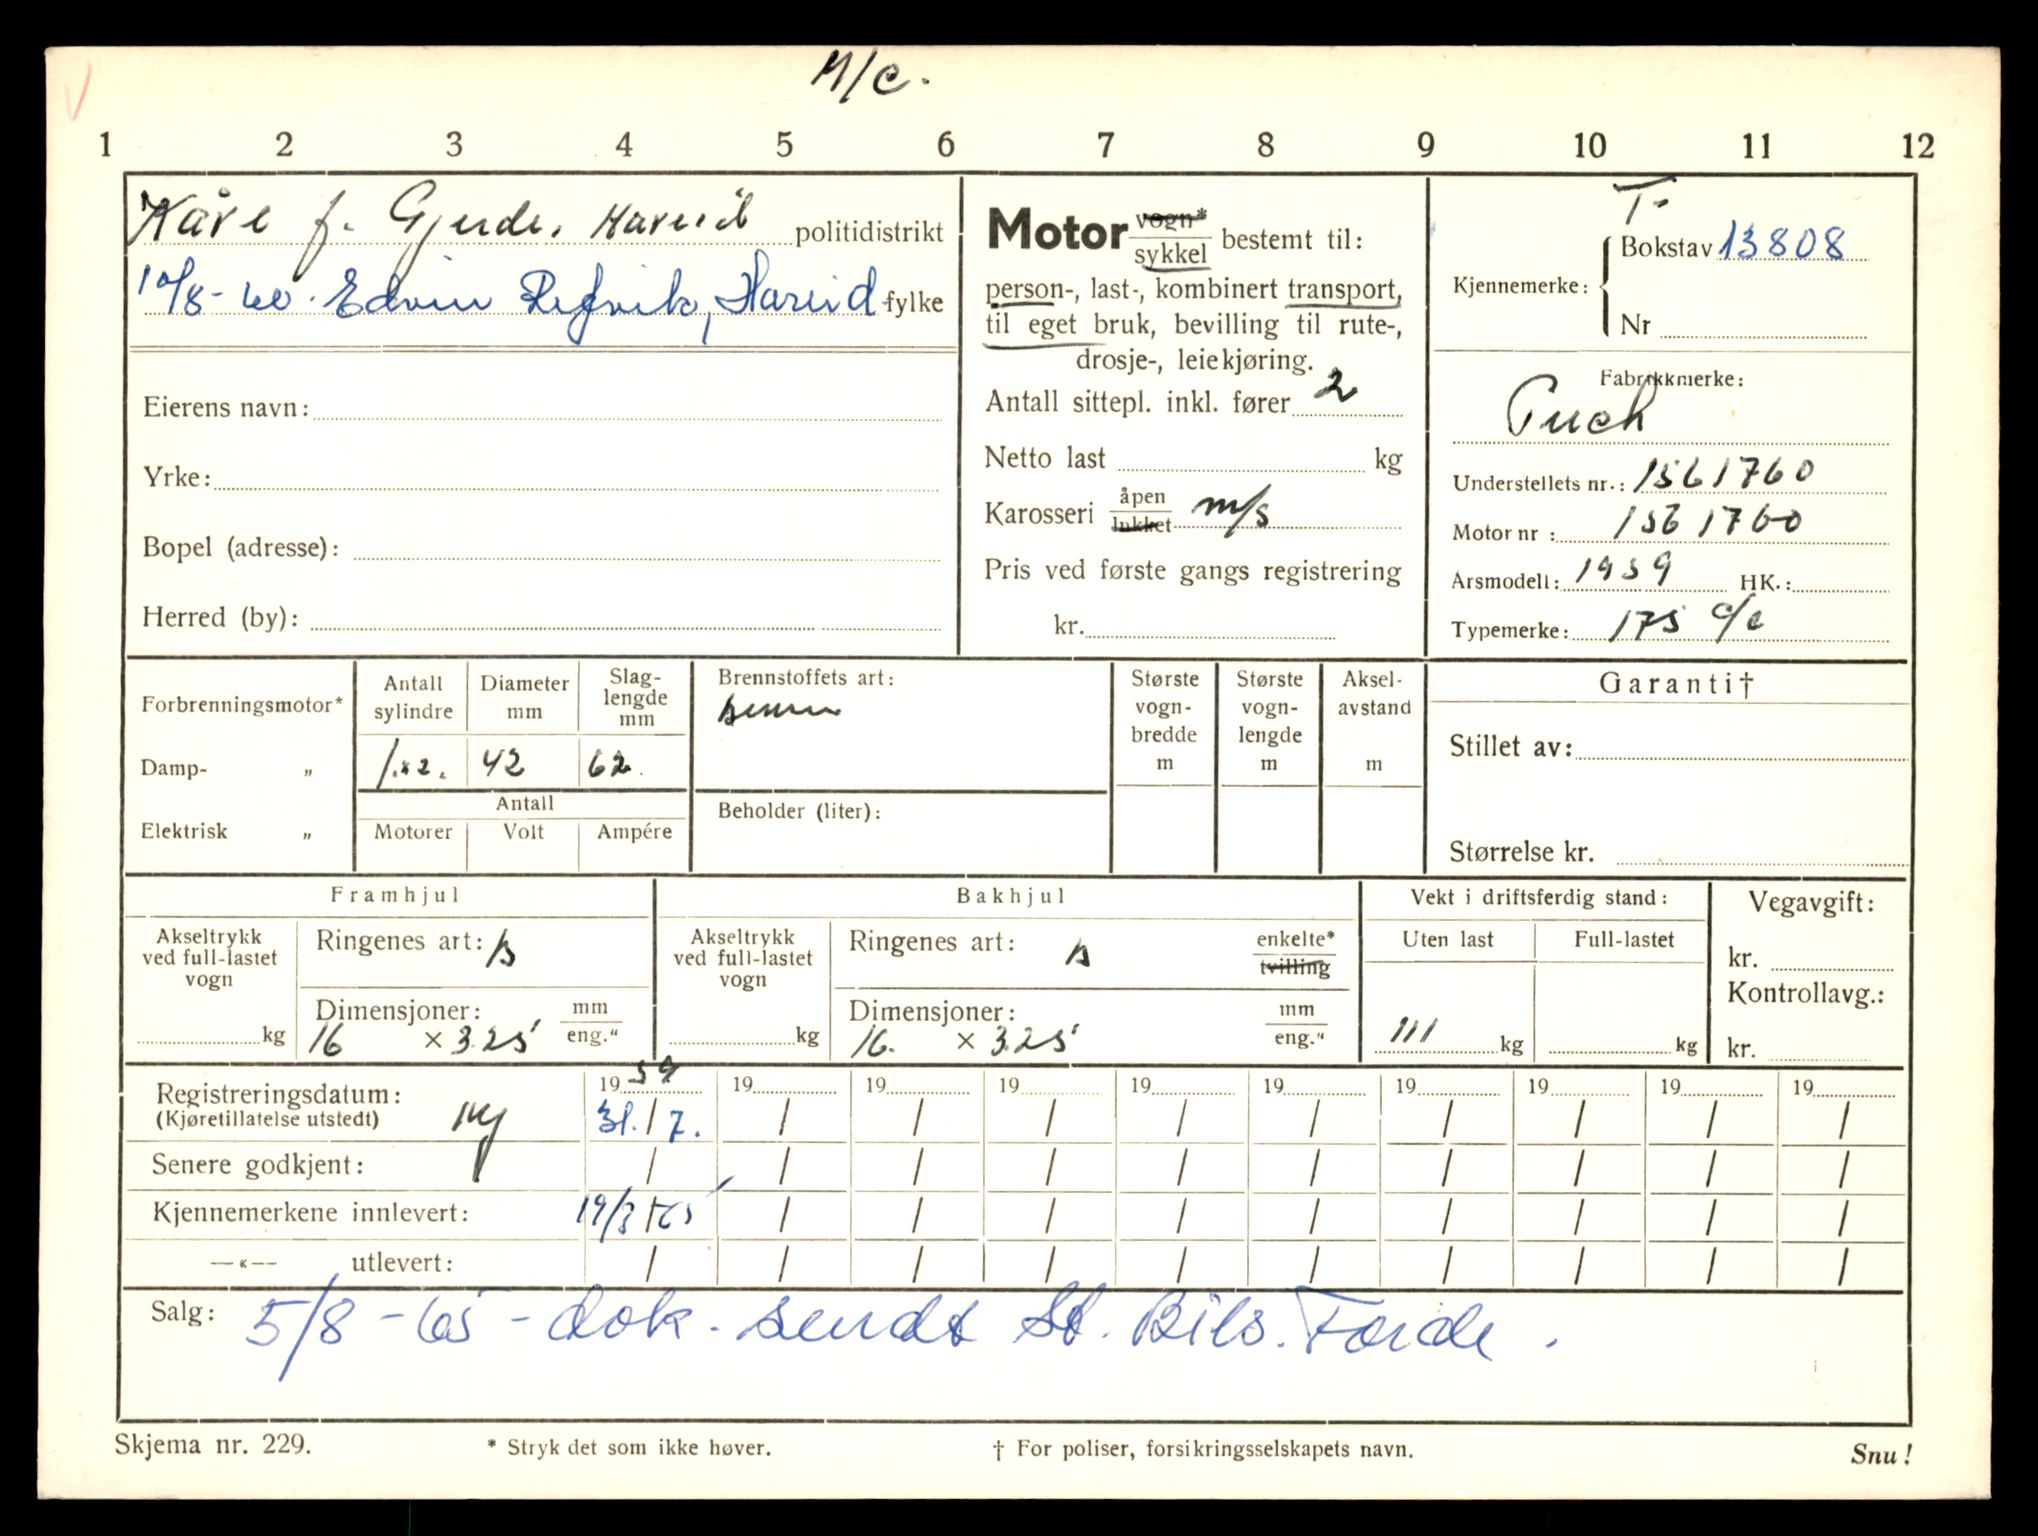 M/c.
1 2 3 4 5 6 7 8 9 10 11 12
Kåre J. Gjerde, Hareid politidistrikt
10/8-60. Edvin Hareid fylke
Eierens navn:
Yrke:
Bopel (adresse):
Herred (by):
Motor vogn* sykkel bestemt til:
person-, last-, kombinert transport,
til eget bruk, bevilling til rute-,
drosje-, leiekjøring.
Antall sittepl. inkl. fører 2
Netto last kg
Karosseri åpen lukket m/s
Pris ved første gangs registrering
kr.
T-
Kjennemerke: Bokstav 13808
Nr
Fabrikkmerke:
Puch
Understellets nr.: 1561760
Motor nr : 1561760
Årsmodell: 1959 HK.:
Typemerke: 175 c/c
Forbrenningsmotor*
Damp- „
Elektrisk „
Antall sylindre Diameter mm Slag-lengde mm
1x2. 42 62.
Antall
Motorer Volt Ampére
Brennstoffets art:
Bensin
Beholder (liter):
Største vogn-bredde m
Største vogn-lengde m
Aksel-avstand m
Garanti†
Stillet av:
Størrelse kr.
Framhjul
Akseltrykk ved full-lastet vogn
kg
Ringenes art: B
Dimensjoner: mm eng."
16 × 3.25
Bakhjul
Akseltrykk ved full-lastet vogn
kg
Ringenes art: B enkelte* tvilling
Dimensjoner: mm eng."
16. × 3.25
Vekt i driftsferdig stand:
Uten last Full-lastet
111 kg kg
Vegavgift:
kr.
Kontrollavg.:
kr.
Registreringsdatum: 1959 19 19 19 19 19 19 19 19 19
(Kjøretillatelse utstedt) Ny 31./7. / / / / / / / / /
Senere godkjent: / / / / / / / / / /
Kjennemerkene innlevert: 19/3 65 / / / / / / / / /
—«— utlevert: / / / / / / / / / /
Salg: 5/8-65- dok. sendt St. Bils. Førde.
Skjema nr. 229. * Stryk det som ikke høver. † For poliser, forsikringsselskapets navn. Snu!